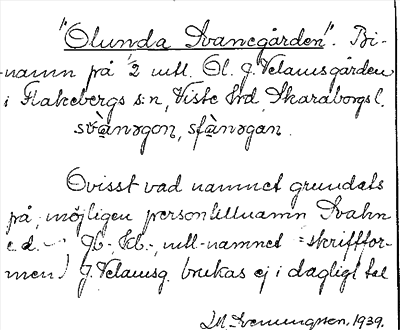 "Olunda Svanegården". Bi-
namn på 1/2 mtl. Ol. J. Velamsgården
i Flakebergs s:n, Viste hrd, Skaraborgs l.
svànəgon, sfànəgan.
Ovisst vad namnet grundats
på, möjligen persontillnamn Svahn
e.d. - Jb.-, kb.-, mtl-namnet (= skriftfor-
men) J. Velamsg. brukas ej i dagligt tal
1939.